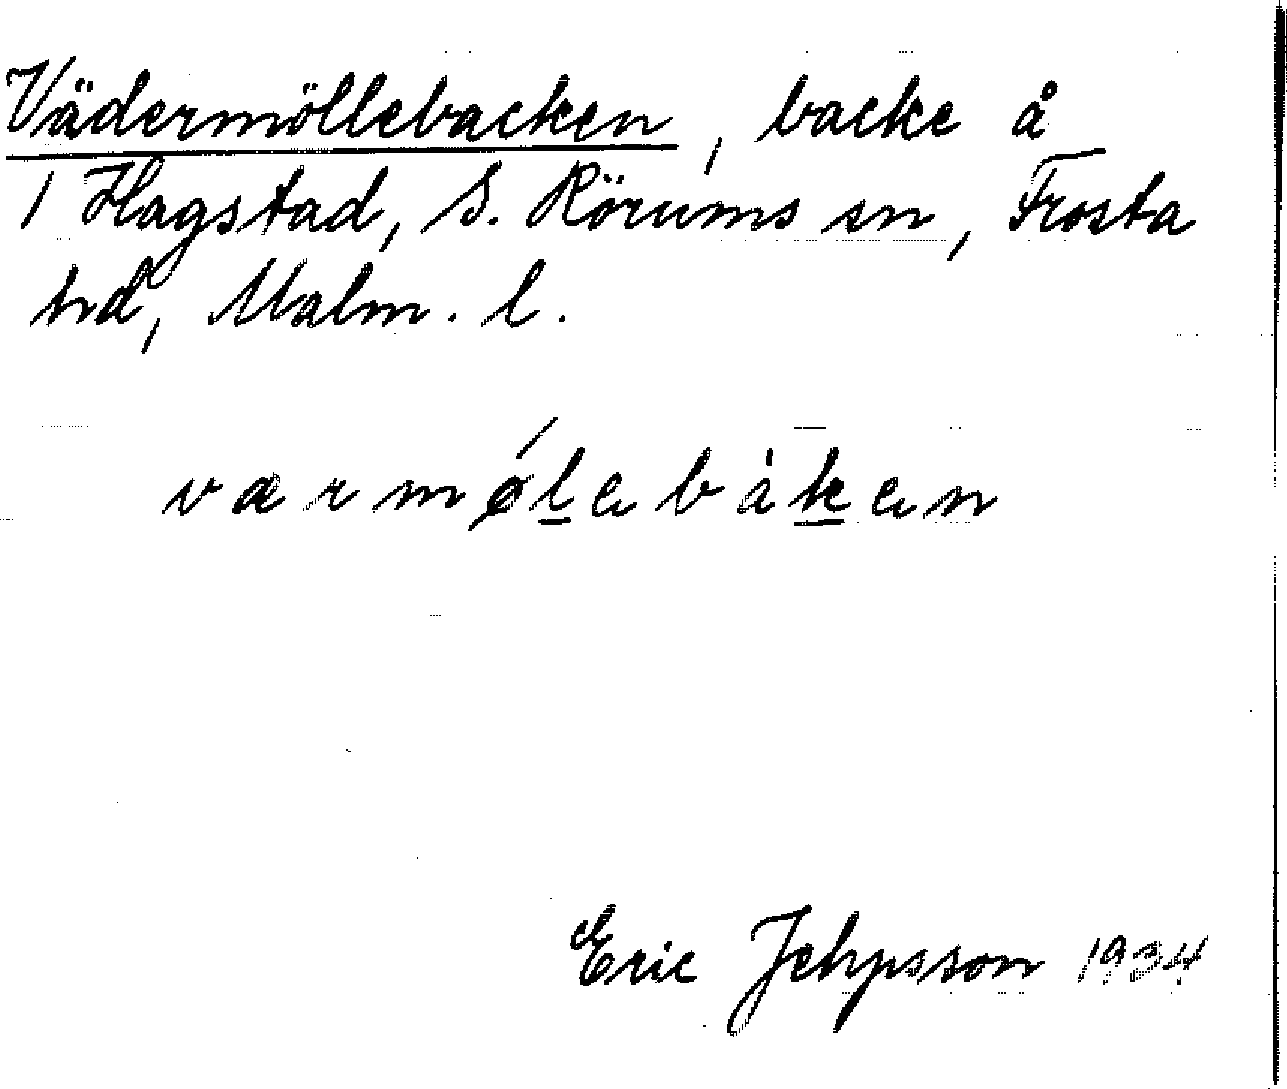 Vädermöllebacken, backe å
1 Hagstad, S. Rörums sn, Frosta
hd, Malm. l.
værmǿlebàken
Eric Jehpsson 1934